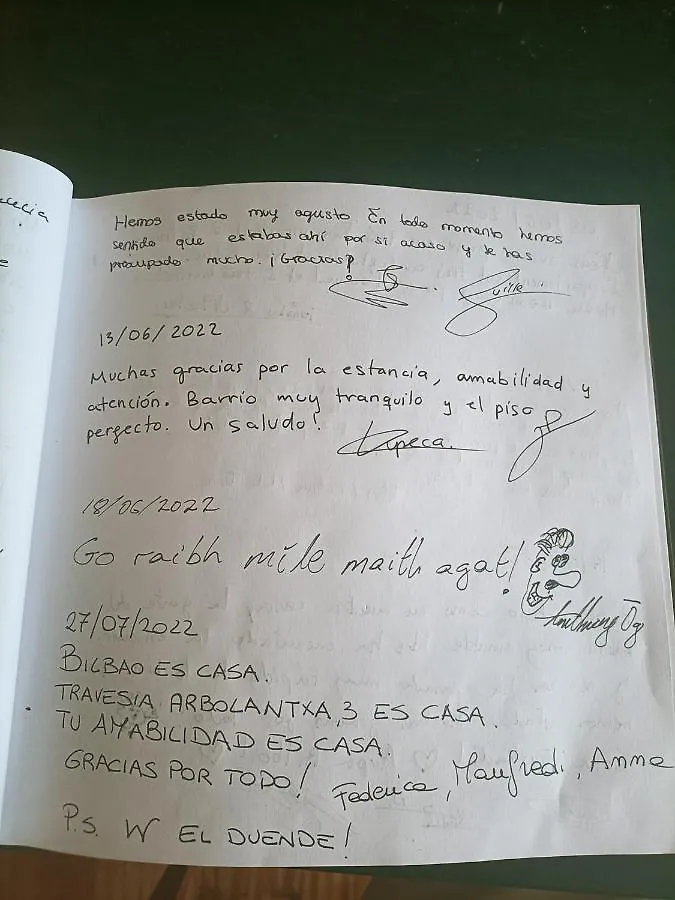 Hemos estado muy agusto En todo momento hemos
sentido que estabas ahí por si acaso y te has
preocupado mucho. ¡Gracias?
Guille
13/06/2022
Muchas gracias por la estancia, amabilidad y
atención. Barrio muy tranquilo y el piso
pergecto. Un saludo!
18/06/2022
Go raibh míle maith agat!
Óg
27/07/2022
BILBAO ES CASA.
TRAVESIA ARBOLANTXA, 3 ES CASA.
TU AMABILIDAD ES CASA.
GRACIAS POR TODO! Federica, Manfredi, Anna
P.S. W EL DUENDE!